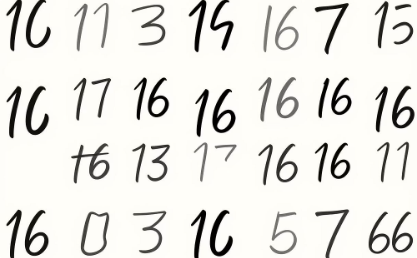 10 11 3 19 16 7 15
10 17 16 16 16 16 16
16 13 17 16 16 11
16 0 3 10 5 7 66